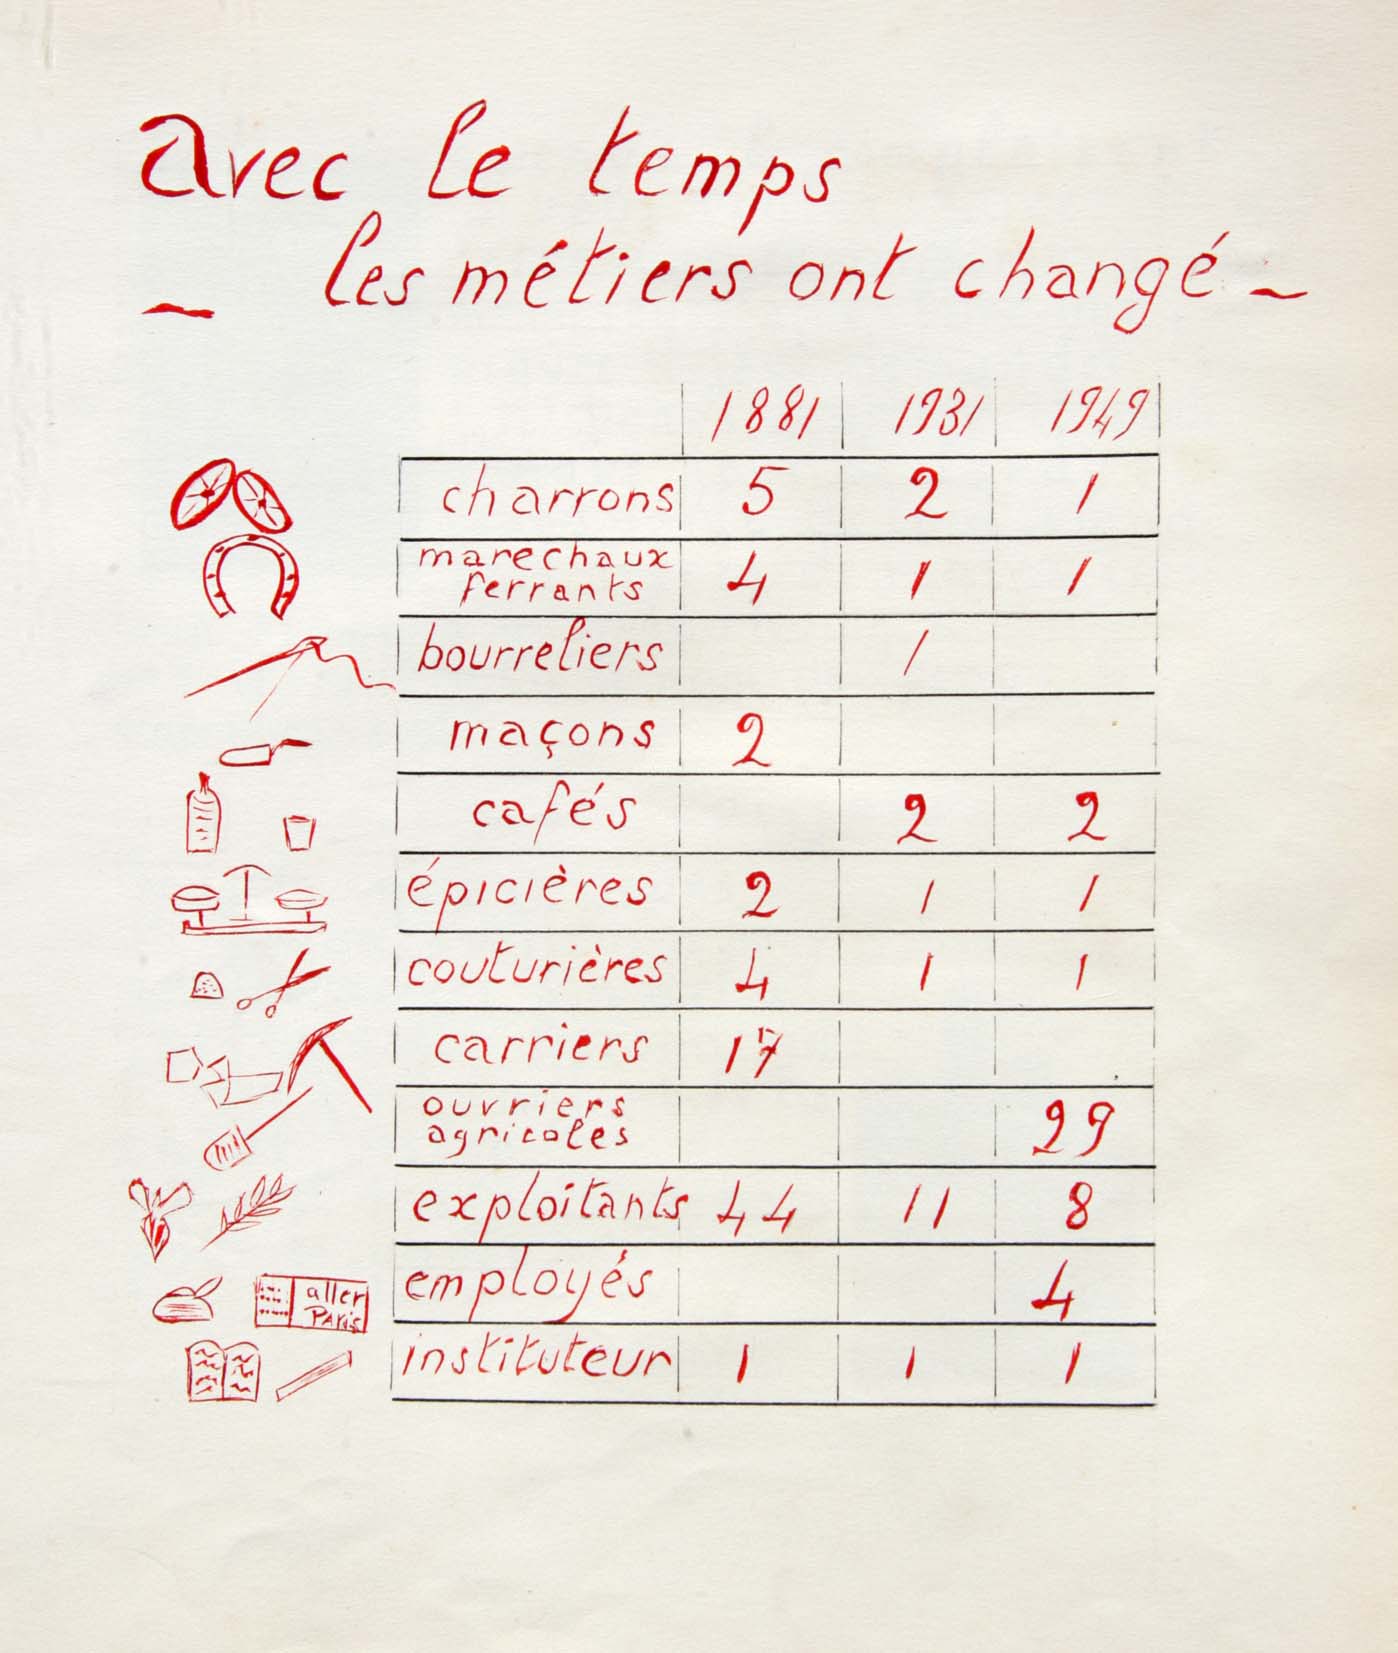 avec le temps
les métiers ont changé
1881 1931 1949
charrons 5 2 1
marechaux
ferrants 4 1 1
bourreliers 1
maçons 2
cafés 2 2
épicières 2 1 1
couturières 4 1 1
carriers 17
ouvriers
agricoles 29
exploitants 44 11 8
employés 4
aller
PARIS
instituteur 1 1 1